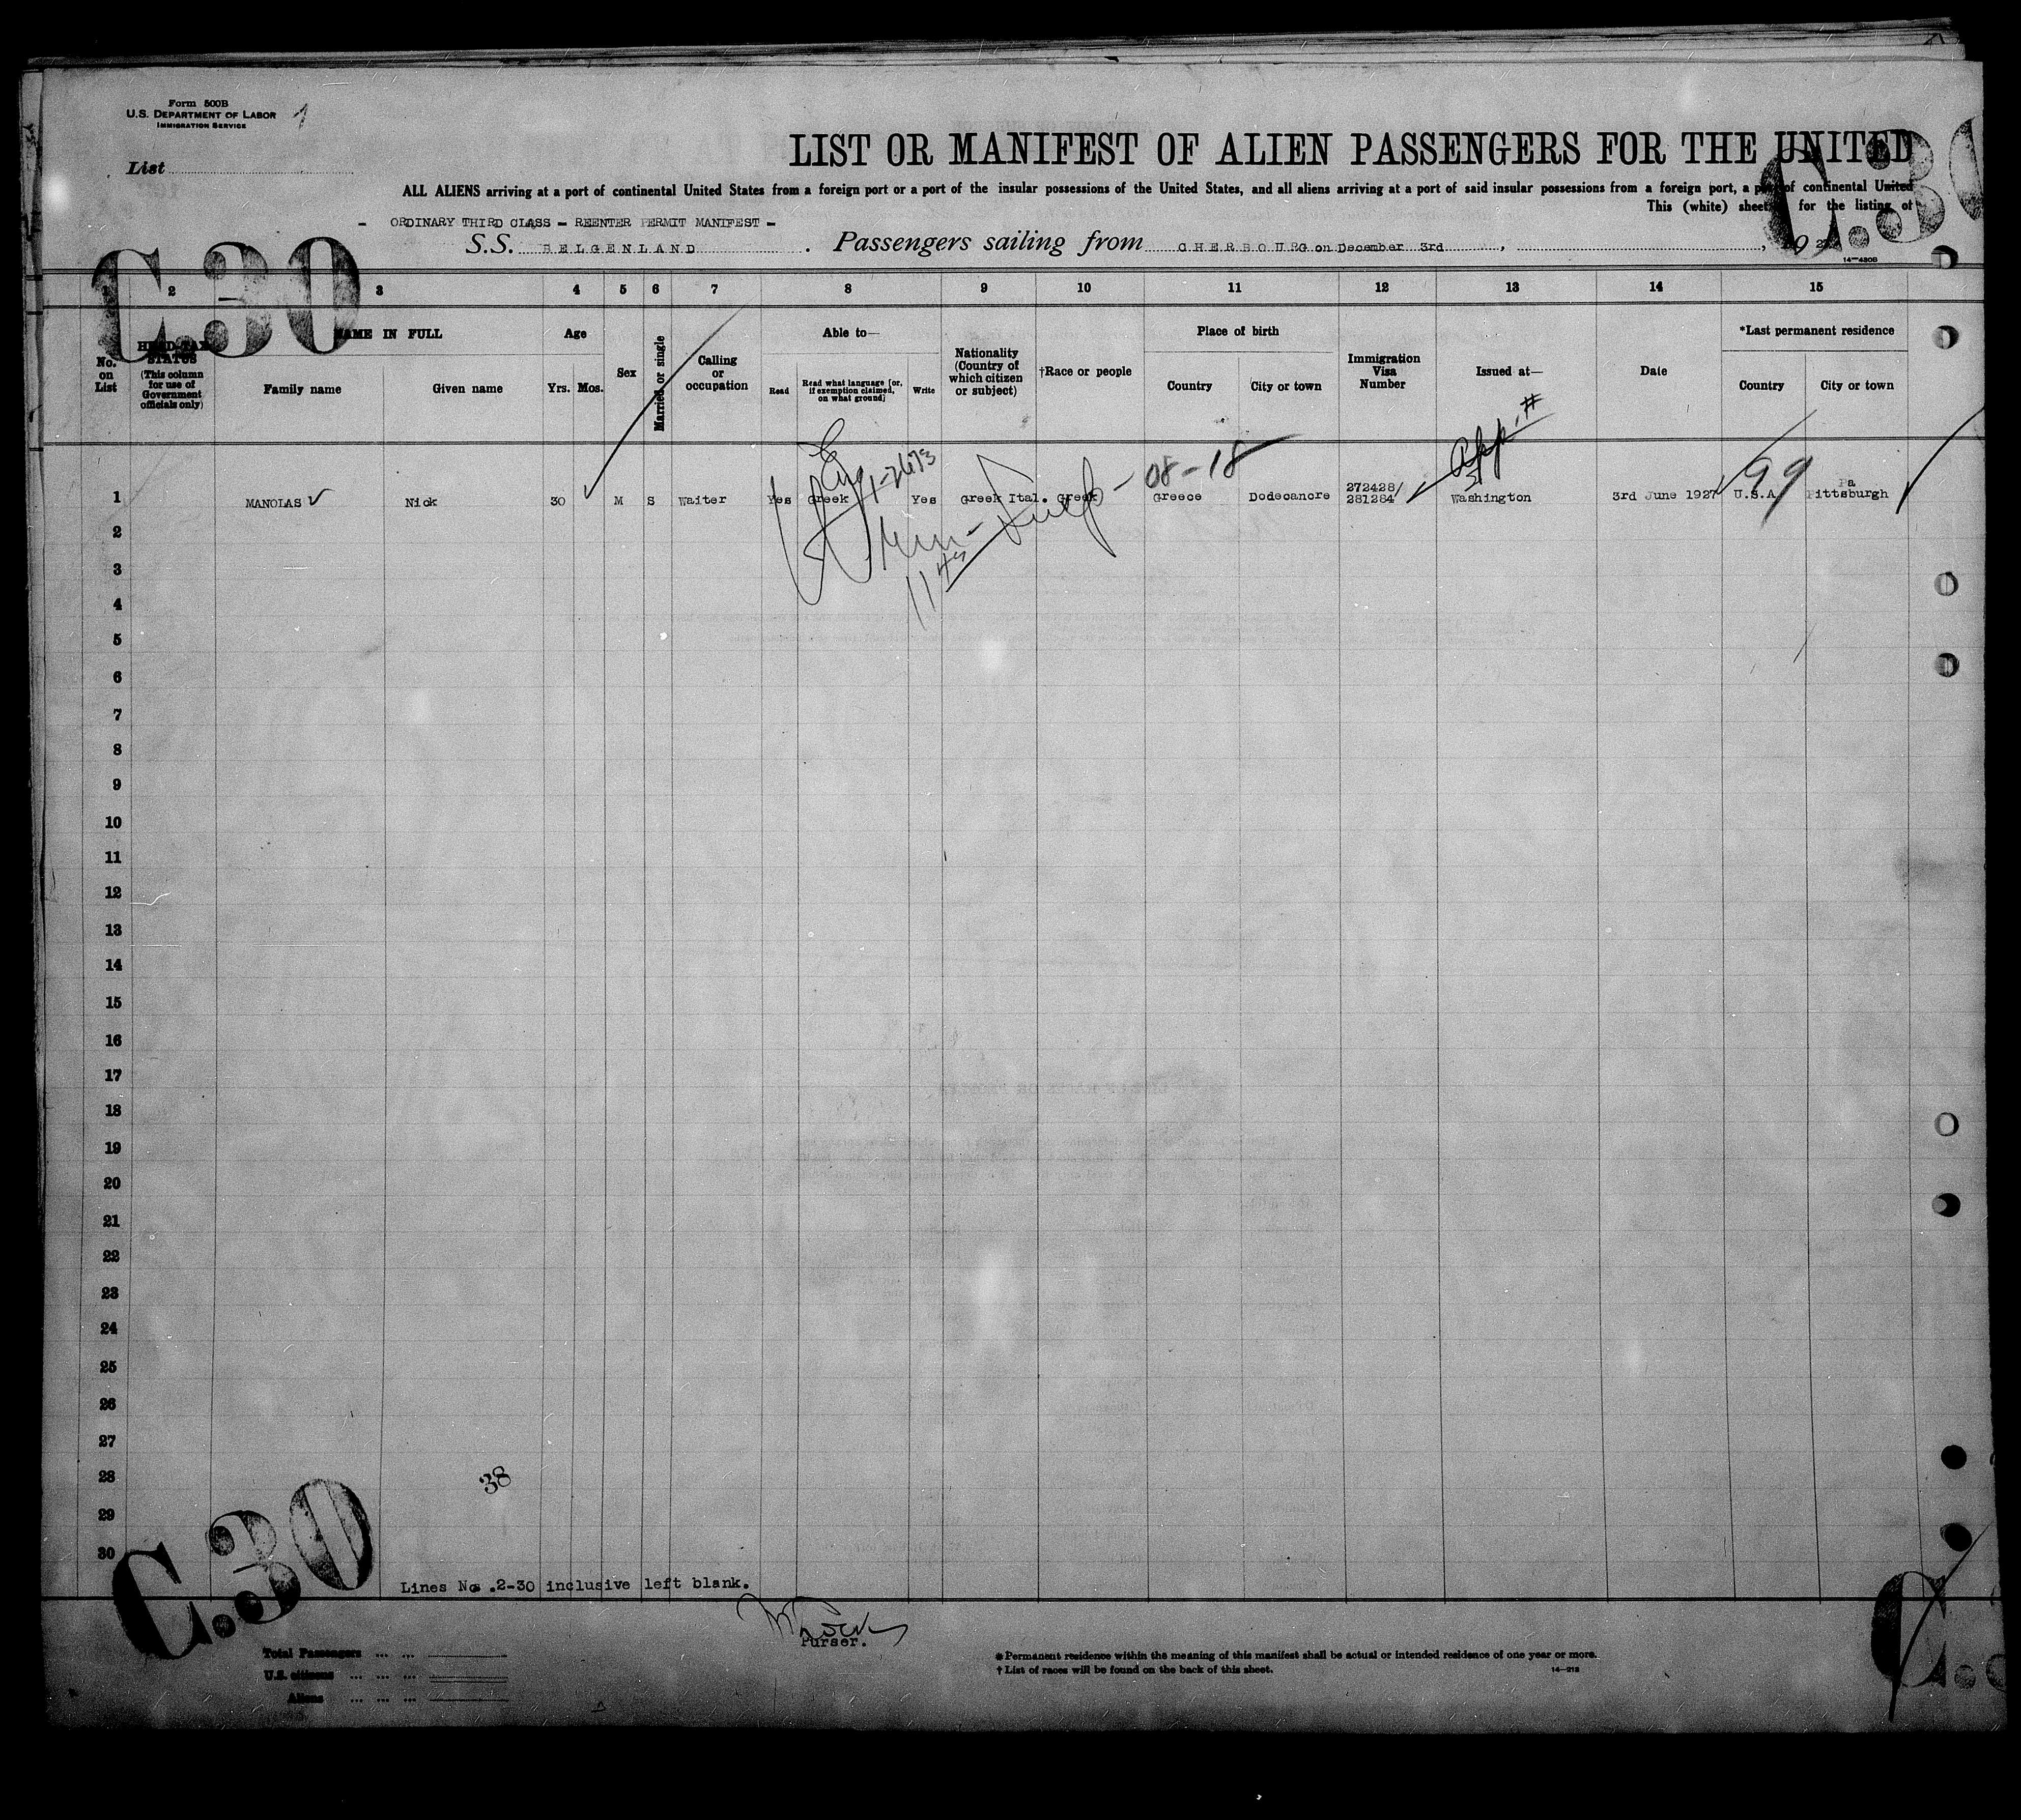 Form 500B
U.S. DEPARTMENT OF LABOR
IMMIGRATION SERVICE
List
LIST OR MANIFEST OF ALIEN PASSENGERS FOR THE UNITED
ALL ALIENS arriving at a port of continental United States from a foreign port or a port of the insular possessions of the United States, and all aliens arriving at a port of said insular possessions from a foreign port, a port of continental United
This (white) sheet for the listing of
- ORDINARY THIRD CLASS - REENTER PERMIT MANIFEST -
S.S. BELGENLAND. Passengers sailing from CHERBOURG on December 3rd, , 1927
14—430B
C.30 C.30
1 2 3 4 5 6 7 8 9 10 11 12 13 14 15
No. on List
HEAD-TAX STATUS (This column for use of Government officials only)
NAME IN FULL
Family name Given name
Age
Yrs. Mos.
Sex
Married or single
Calling or occupation
Able to—
Read
Read what language [or, if exemption claimed, on what ground]
Write
Nationality (Country of which citizen or subject)
†Race or people
Place of birth
Country City or town
Immigration Visa Number
Issued at—
Date
*Last permanent residence
Country City or town
Eng 08-18 App # 99
1 MANOLAS Nick 30 M S Waiter Yes Greek Yes Greek Ital. Greek Greece Dodecanore 272428/ 281284 Washington 3rd June 1927 U.S.A. Pa Pittsburgh
2
3
4
5
6
7
8
9
10
11
12
13
14
15
16
17
18
19
20
21
22
23
24
25
26
27
28
29
30
38
C.30
Lines Nos.2-30 inclusive left blank.
Purser.
Total Passengers ... ...
U.S. citizens ... ... ...
Aliens ... ... ...
*Permanent residence within the meaning of this manifest shall be actual or intended residence of one year or more.
†List of races will be found on the back of this sheet.
14—213